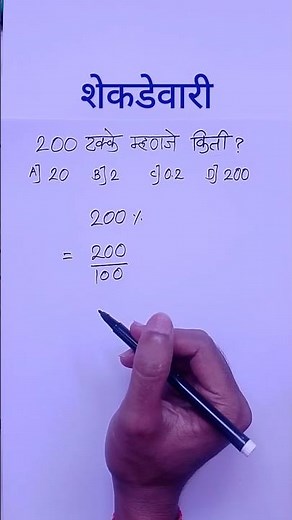 शेकडेवारी
200 टक्के म्हणजे किती?
A] 20 B] 2 C] 0.2 D] 200
200 %
= 200
100